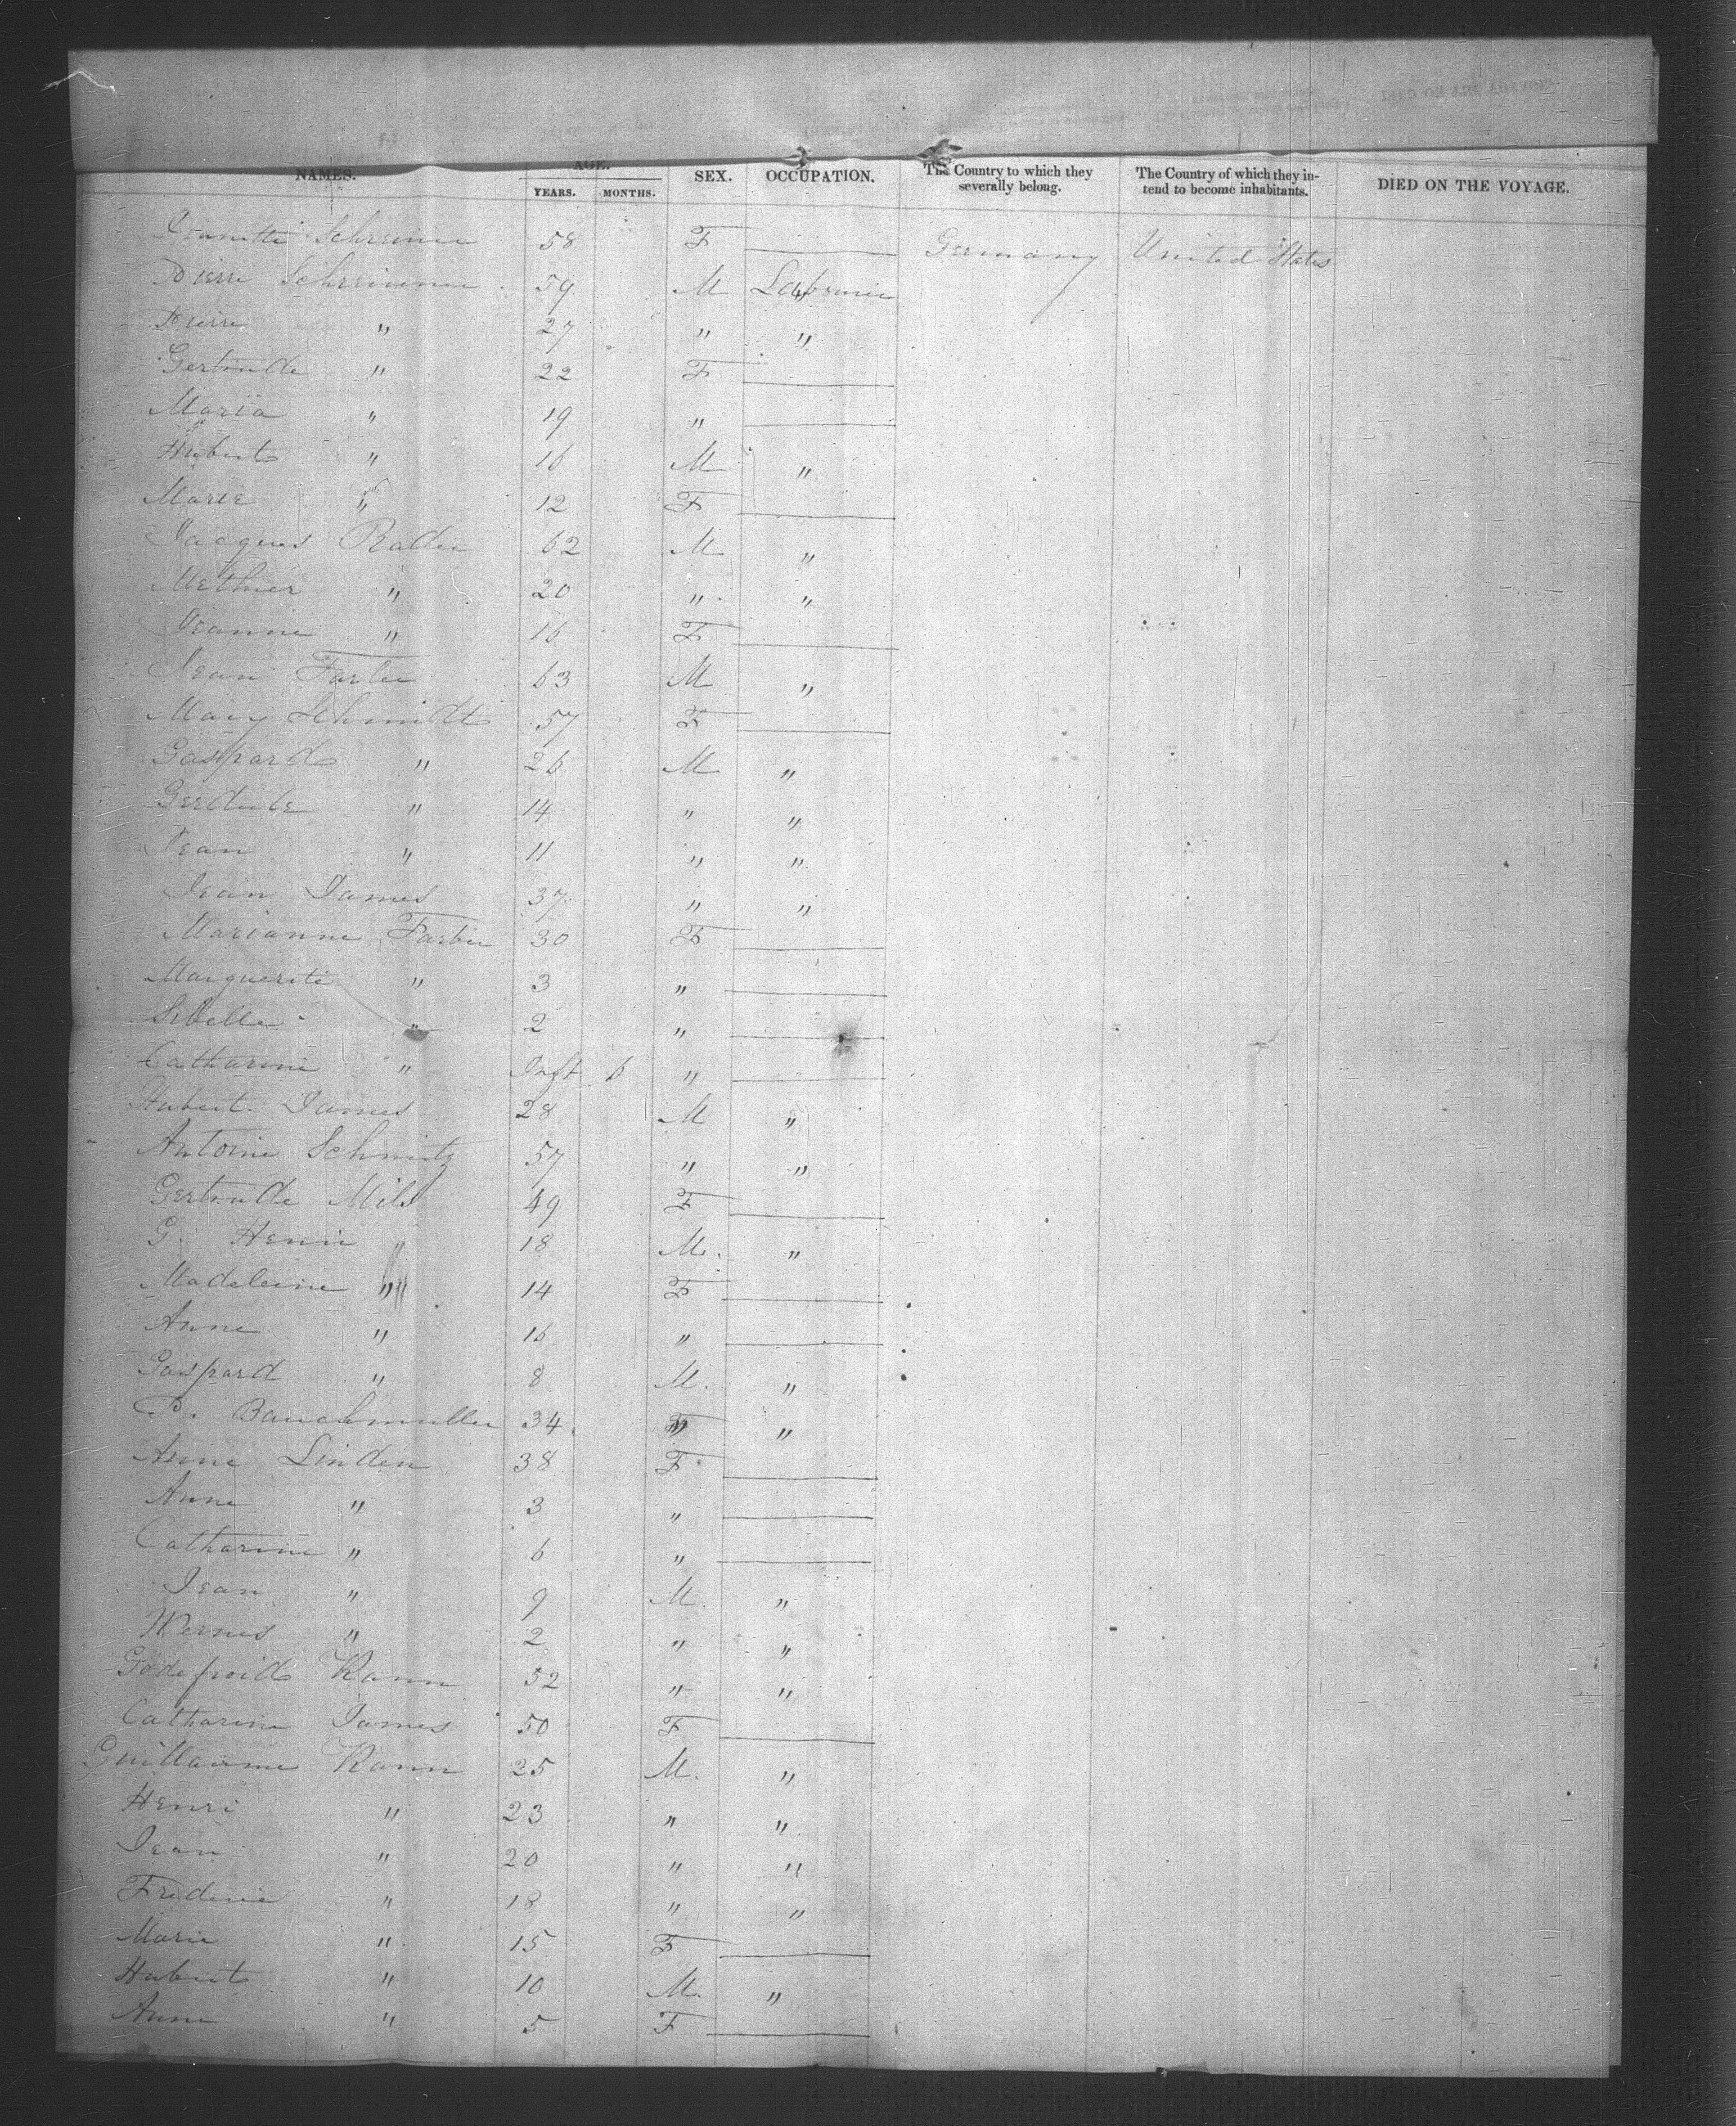 NAMES. AGE. SEX. OCCUPATION. The Country to which they severally belong. The Country of which they intend to become inhabitants. DIED ON THE VOYAGE.
YEARS. MONTHS.
Schreiner 58 F Germany United States
Pierre Schreiner 59 M
Pierre " 27 " "
Gertrude " 22 F
Maria " 19 "
Hubert " 16 M "
Marie " 12 F
Jacques 62 M "
" 20 " "
Jeanne " 16 F
Jean 63 M "
Mary Schmidt 57 F
Gaspard " 26 M "
" 14 " "
Jean " 11 " "
Jean James 37 " "
Marianne Farber 30 F
Marguerite " 3 "
Sibella " 2 "
Catharine " Inft 6 "
Hubert James 28 M "
Antoine Schmitz 57 " "
Gertrude Mils 49 F
G. Henri " 18 M. "
Madeleine " 14 F
Anne " 16 "
Gaspard " 8 M. "
P. Bauchmuller 34 " "
Anne Linden 38 F
Anne " 3 "
Catharine " 6 "
Jean " 9 M. "
" 2 " "
Godefroid Kann 52 " "
Catharine James 50 F
Guillaume Kann 25 M. "
Henri " 23 " "
Jean " 20 " "
Frederic " 18 " "
Marie " 15 F
Hubert " 10 M. "
Anne " 5 F